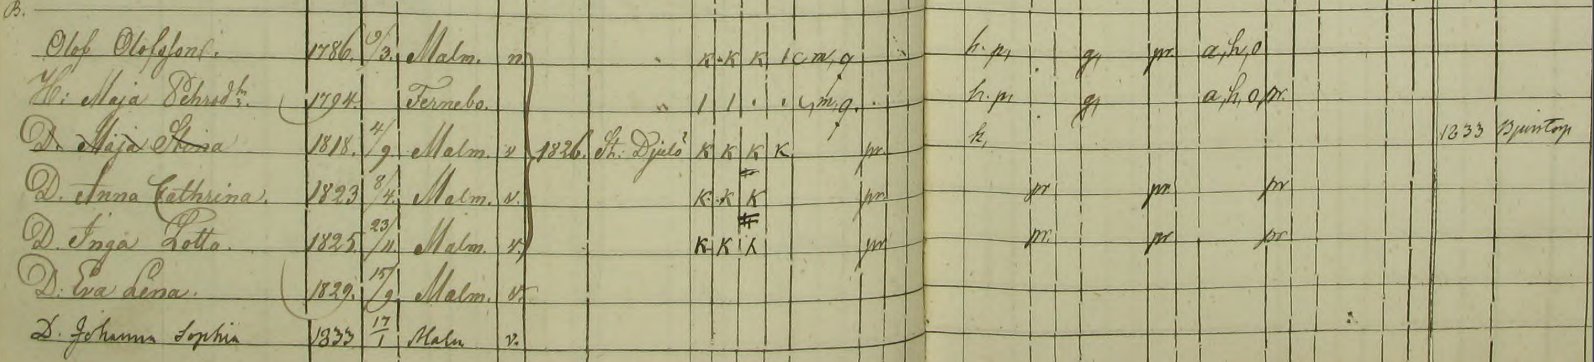 B.
Olof Olofsson. 1786. 9/3. Malm. n. K. K K K m, g h. p, g, pr. a, h, o
H: Maja Pehrsd:r. 1794. Fernebo. 1 1 m, g. h. p, g, a, h, o, pr.
D. Maja Stina 1818. 4/9 Malm. v 1826. St: Djulö K K K K pr. h, 1833 Bjuntorp
D. Anna Cathrina. 1823 8/4. Malm. v. K. K K pr pr pr pr
D. Inga Lotta. 1825. 23/11. Malm. v. K K K pr pr. pr pr
D. Eva Lena. 1829. 15/9 Malm. v.
D. Johanna Sophia 1833 17/1 Malm v.